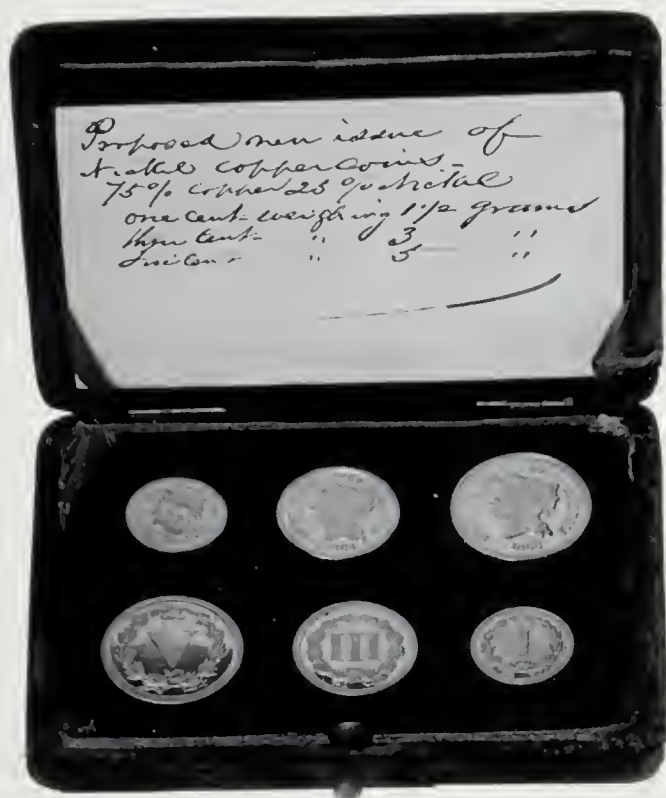 Proposed new issue of
Nickel copper Coins –
75% Copper 25% Nickel
one cent – weighing 1 1/2 grams
three cent – " 3 — "
five cent – " 5 "
V III I